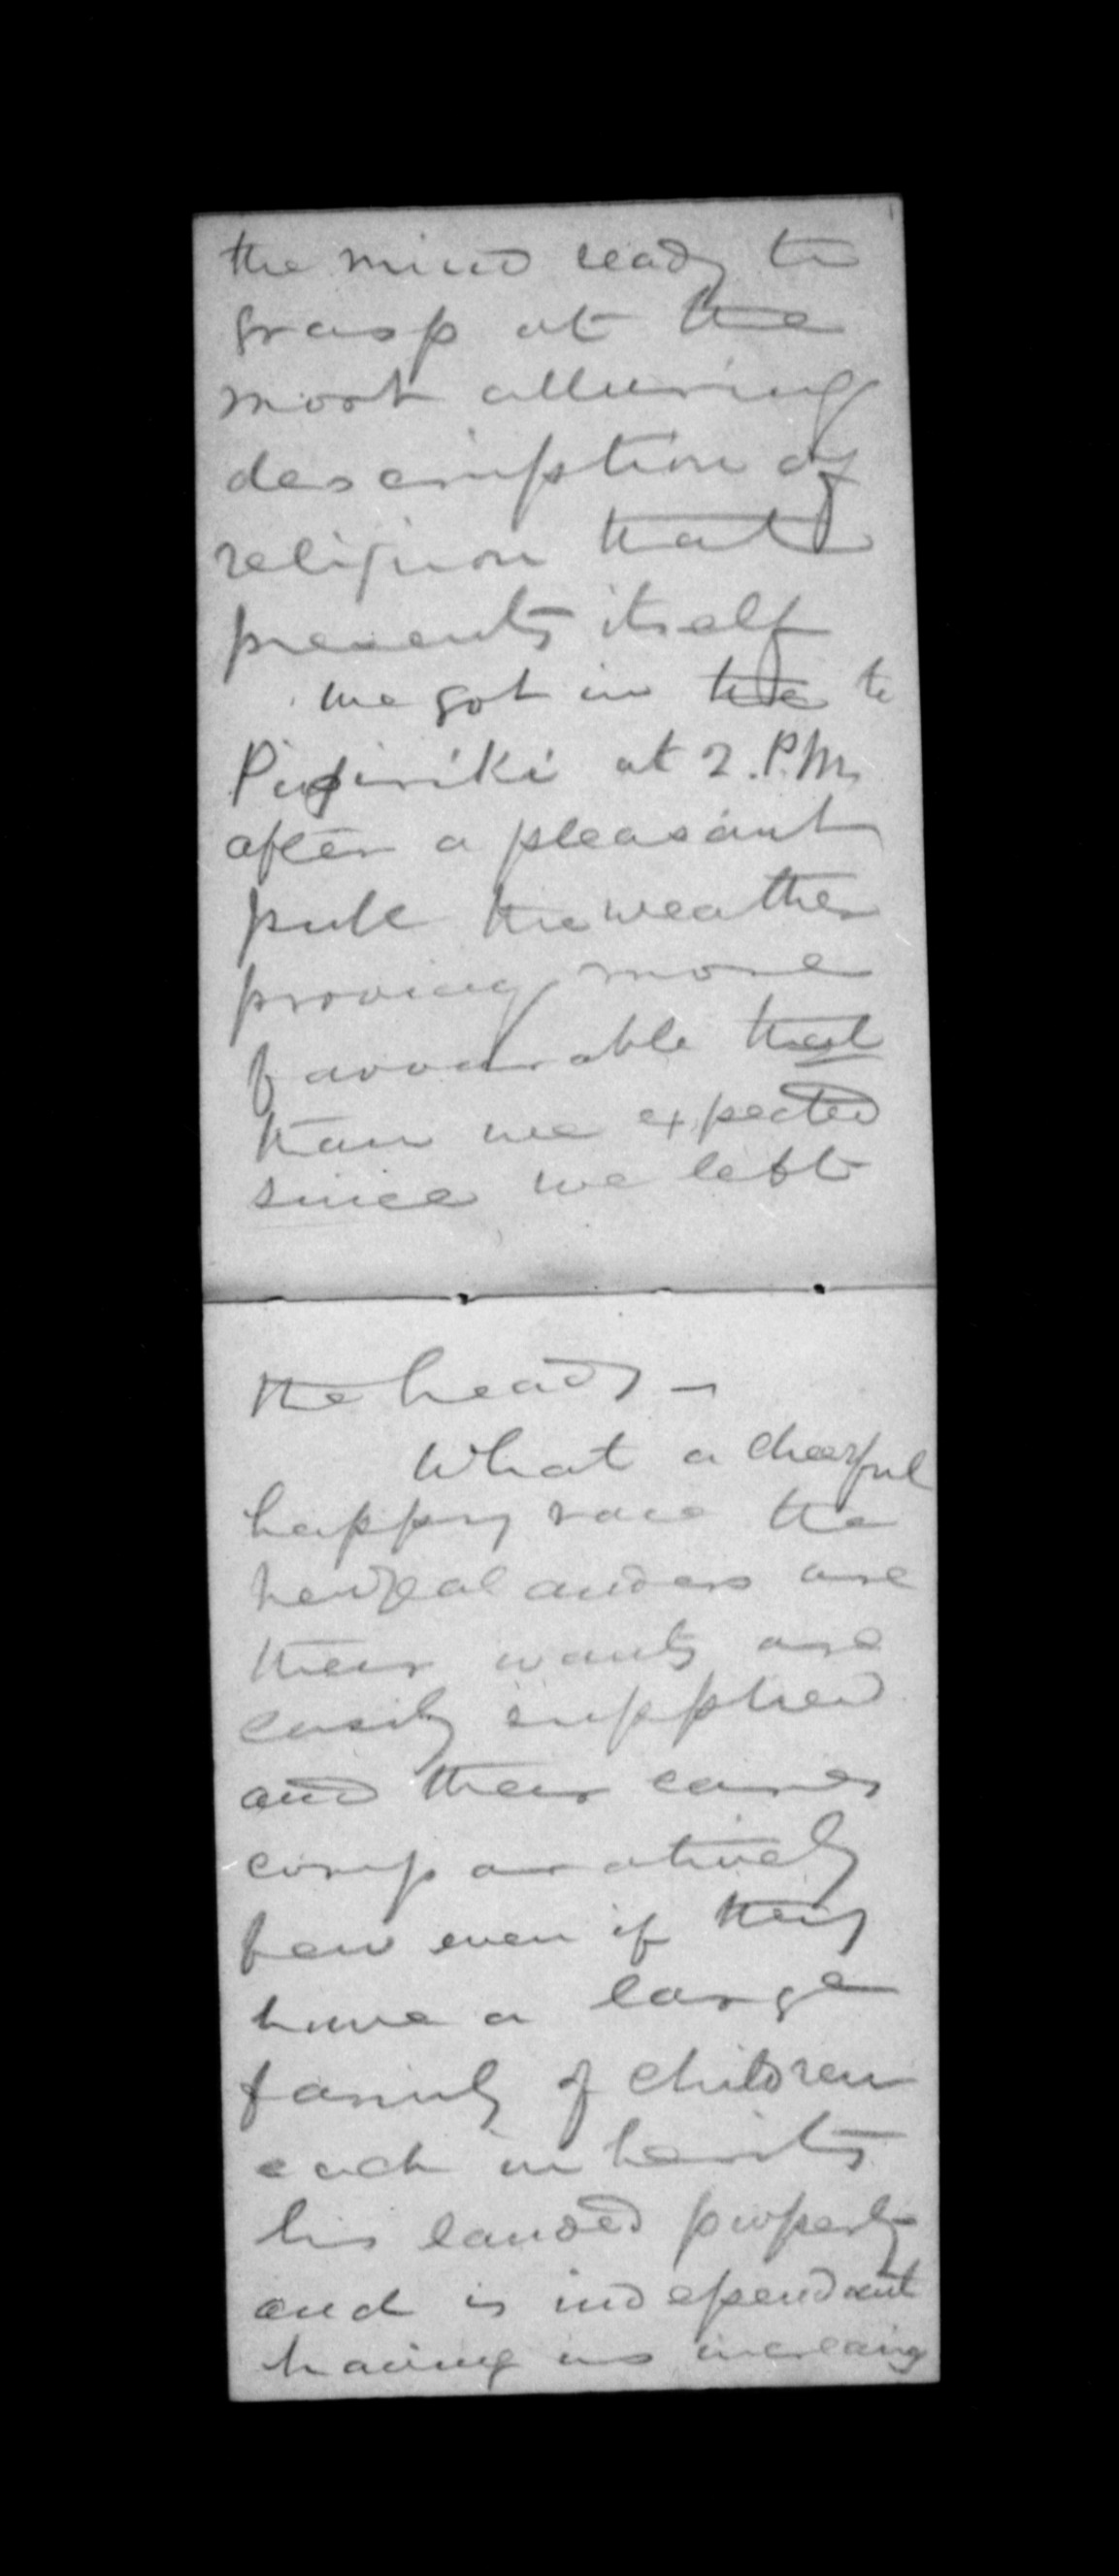 the mind ready to
grasp at the
most alluring
description of
religion that
presents itself
we got in the to
Pipiriki at 2. P.M.
after a pleasant
pull the weather
proving more
favourable that
than we expected
since we left
the heads —
What a cheerful
happy race the
newzealanders are
their wants are
easily supplied
and their cares
comparatively
few even if they
have a large
family of children
each inherits
his landed property
and is independant
having no increasing